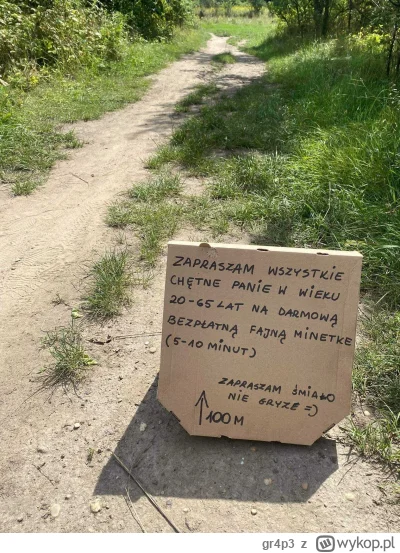 ZAPRASZAM WSZYSTKIE
CHĘTNE PANIE W WIEKU
20-65 LAT NA DARMOWĄ
BEZPŁATNĄ FAJNĄ MINETKE
(5-10 MINUT)
ZAPRASZAM ŚMIAŁO
NIE GRYZĘ =)
↑100M
gr4p3 z wykop.pl